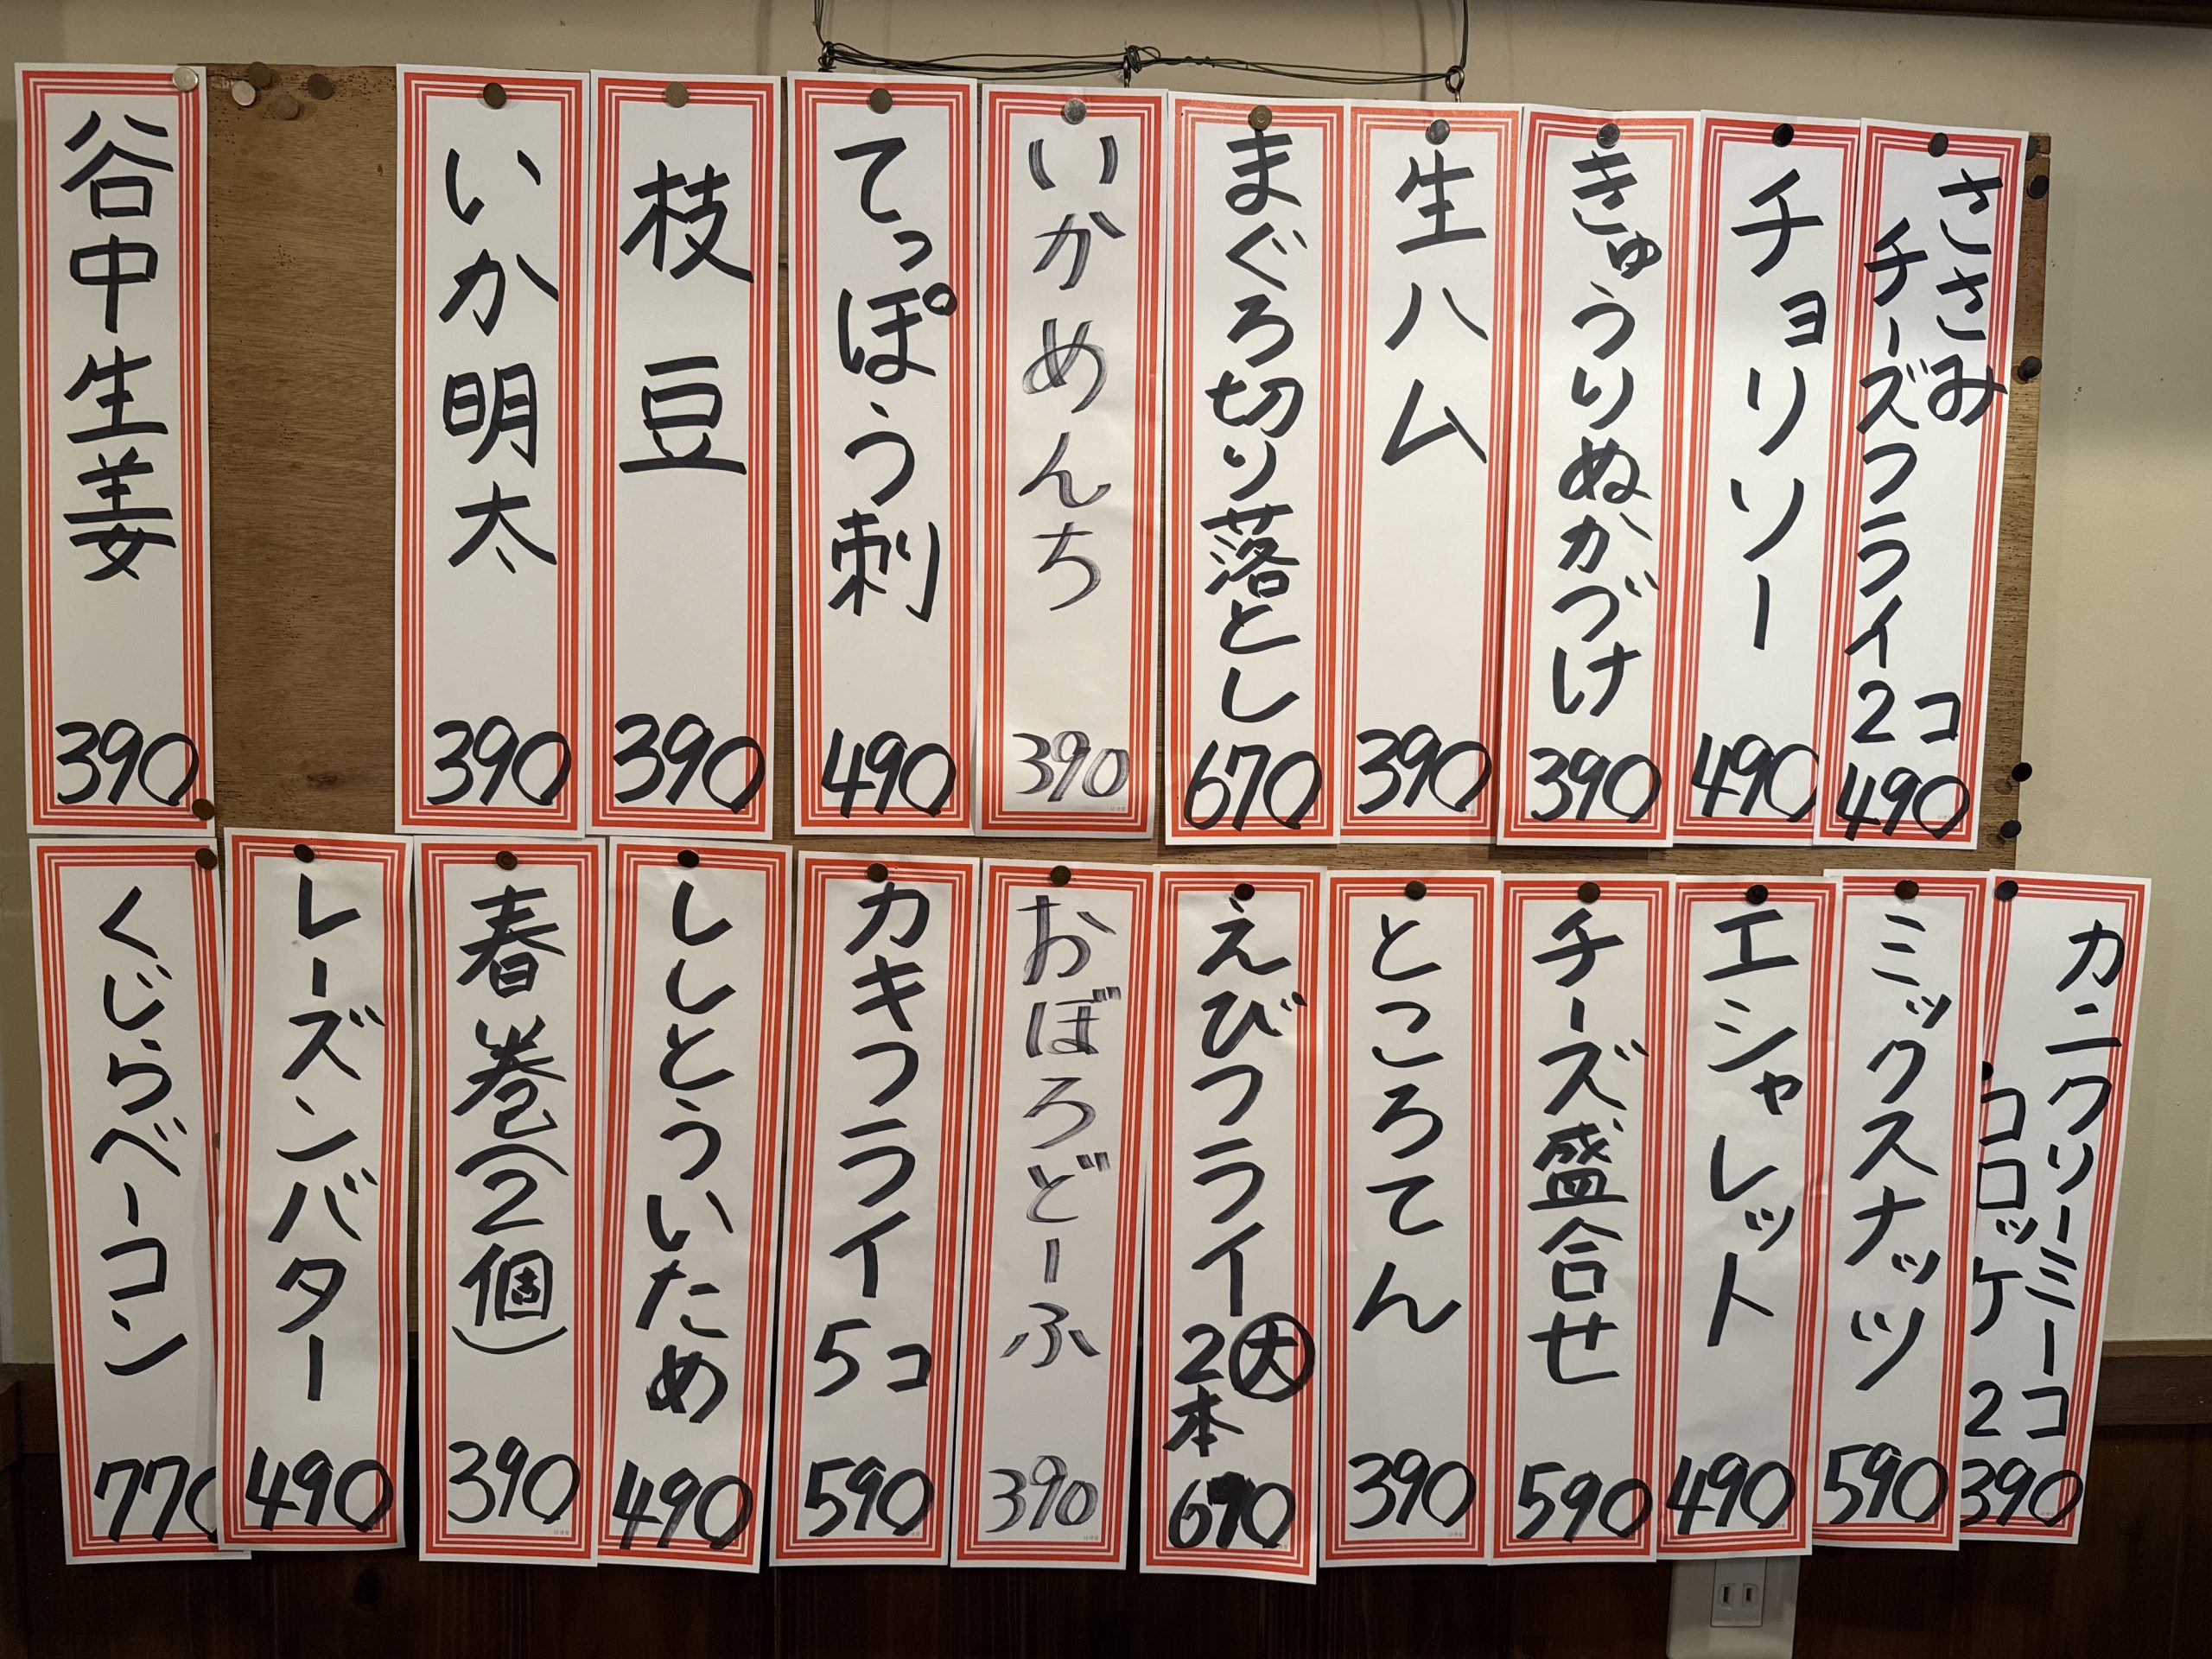 ささみ
チーズフライ2コ
490
チョリソー
490
きゅうりぬかづけ
390
生ハム
390
まぐろ切り落とし
670
いかめんち
390
てっぽう刺
490
枝豆
390
いか明太
390
谷中生姜
390
カニクリーミー
コロッケ2コ
390
ミックスナッツ
590
エシャレット
490
チーズ盛合せ
590
ところてん
390
えびフライ
大
2本
おぼろどーふ
390
カキフライ5コ
590
ししとういため
490
春巻(2個)
390
レーズンバター
490
くじらベーコン
770